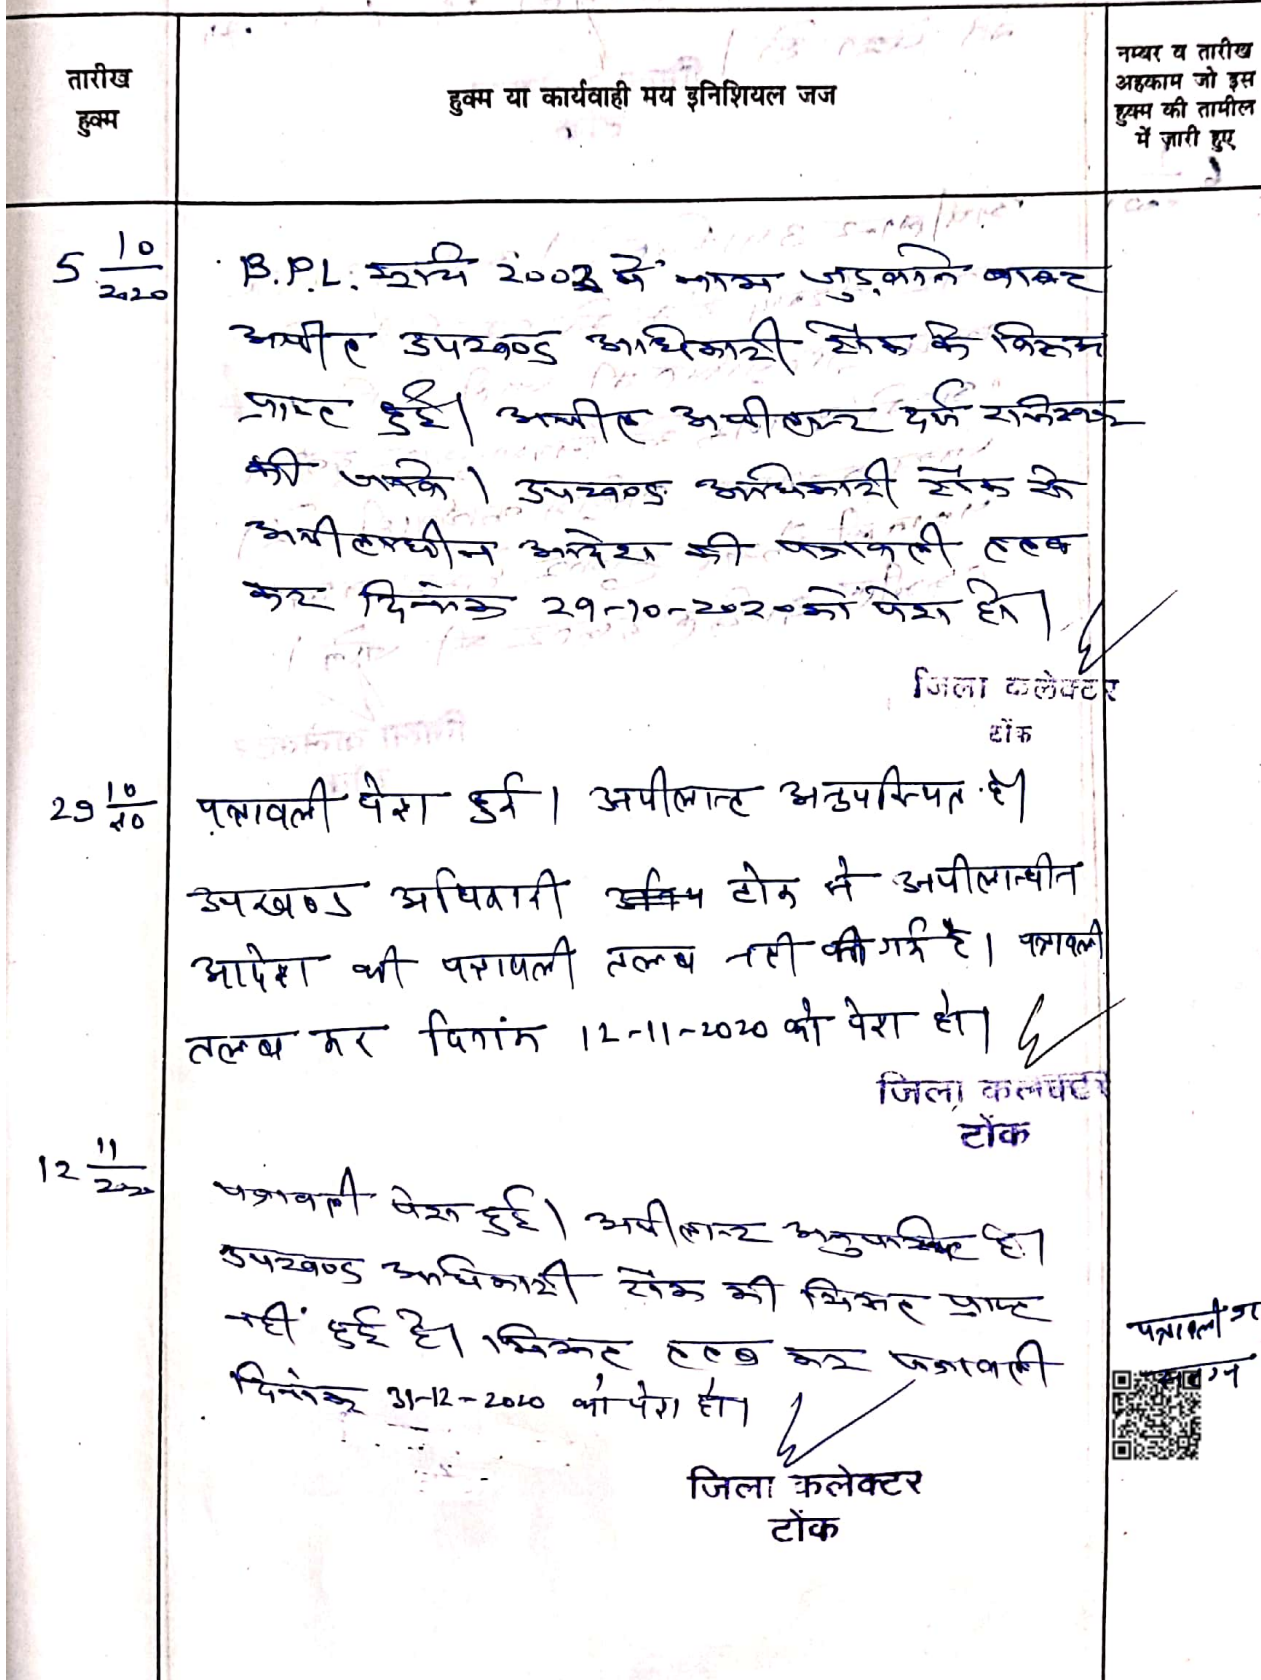 तारीख
हुक्म
हुक्म या कार्यवाही मय इनिशियल जज
नम्बर व तारीख
अहकाम जो इस
हुक्म की तामील
में ज़ारी हुए
5 10/2020
B.P.L. सूचि 2002 में नाम जुड़वाने बाबत
अपील उपखण्ड अधिकारी टोंक के विरूद्ध
प्राप्त हुई। अपील अपीलान्ट दर्ज रजिस्टर
की जावे। उपखण्ड अधिकारी टोंक से
अपीलाधीन आदेश की पत्रावली तलब
कर दिनांक 29-10-2020 को पेश हो।
जिला कलेक्टर
टोंक
29 10/20
पत्रावली पेश हुई। अपीलान्ट अनुपस्थित है।
उपखण्ड अधिकारी टोंक से अपीलाधीन
आदेश की पत्रावली तलब नही की गई है। पत्रावली
तलब कर दिनांक 12-11-2020 को पेश हो।
जिला कलेक्टर
टोंक
12 11/2020
पत्रावली पेश हुई। अपीलान्ट अनुपस्थित है।
उपखण्ड अधिकारी टोंक की मिसल प्राप्त
नहीं हुई है। मिसल तलब कर पत्रावली
दिनांक 31-12-2020 को पेश हो।
जिला कलेक्टर
टोंक
पत्रावली